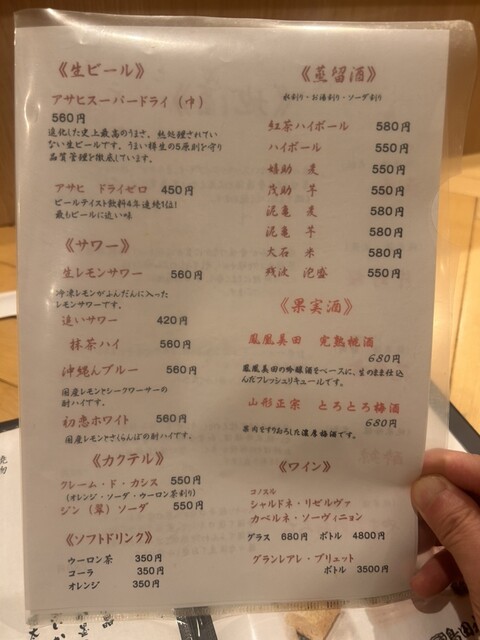 《生ビール》
アサヒスーパードライ（中）
560円
進化した史上最高のうまさ。熱処理されてい
ない生ビールです。うまい樽生の5原則を守り
品質管理を徹底しています。
アサヒ ドライゼロ 450円
ビールテイスト飲料4年連続1位!
最もビールに近い味
《サワー》
生レモンサワー 560円
冷凍レモンがふんだんに入った
レモンサワーです。
追いサワー 420円
抹茶ハイ 560円
沖縄んブルー 560円
国産レモンとシークワーサーの
酎ハイです。
初恋ホワイト 560円
国産レモンとさくらんぼの酎ハイです。
《カクテル》
クレーム・ド・カシス 550円
(オレンジ・ソーダ・ウーロン茶割り)
ジン（翠）ソーダ 550円
《ソフトドリンク》
ウーロン茶 350円
コーラ 350円
オレンジ 350円
《蒸留酒》
水割り・お湯割り・ソーダ割り
紅茶ハイボール 580円
ハイボール 550円
嬉助 麦 550円
茂助 芋 550円
泥亀 麦 580円
泥亀 芋 580円
大石 米 580円
残波 泡盛 550円
《果実酒》
鳳凰美田 完熟桃酒
680円
鳳凰美田の吟醸酒をベースに、生のまま仕込
んだフレッシュリキュールです。
山形正宗 とろとろ梅酒
680円
果肉をすりおろした濃厚梅酒です。
《ワイン》
コノスル
シャルドネ・リゼルヴァ
カベルネ・ソーヴィニョン
グラス 680円 ボトル 4800円
グランレアレ・ブリュット
ボトル 3500円